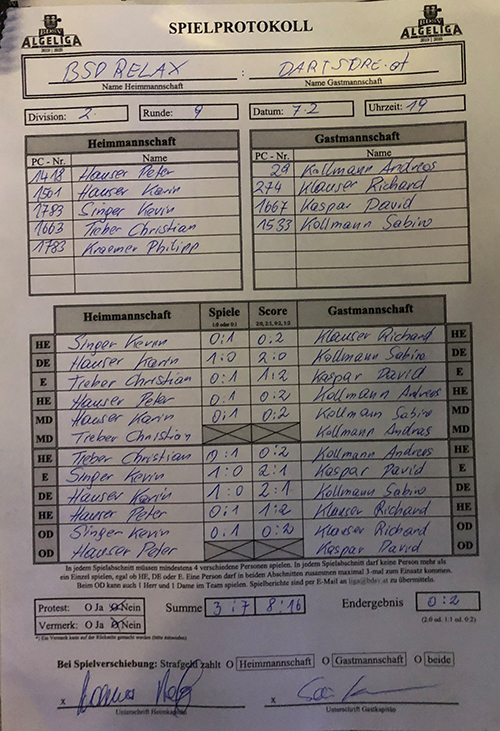 BDSV
ALGELIGA
2019 | 2020
SPIELPROTOKOLL
BDSV
ALGELIGA
2019 | 2020
BSD RELAX : DARTSTORE.at
Name Heimmannschaft Name Gastmannschaft
Division: 2. Runde: 9 Datum: 7.2 Uhrzeit: 19
Heimmannschaft Gastmannschaft
PC - Nr. Name PC - Nr. Name
1418 Hauser Peter 29 Kollmann Andreas
1501 Hauser Karin 274 Klauser Richard
1783 Singer Kevin 1667 Kaspar David
1663 Treber Christian 1533 Kollmann Sabine
1783 Kraemer Philipp
Heimmannschaft Spiele Score Gastmannschaft
1:0 oder 0:1 2:0, 2:1, 0:2, 1:2
HE Singer Kevin 0:1 0:2 Klauser Richard HE
DE Hauser Karin 1:0 2:0 Kollmann Sabine DE
E Treber Christian 0:1 1:2 Kaspar David E
HE Hauser Peter 0:1 0:2 Kollmann Andreas HE
MD Hauser Karin 0:1 0:2 Kollmann Sabine MD
MD Treber Christian Kollmann Andreas MD
HE Treber Christian 0:1 0:2 Kollmann Andreas HE
E Singer Kevin 1:0 2:1 Kaspar David E
DE Hauser Karin 1:0 2:1 Kollmann Sabine DE
HE Hauser Peter 0:1 1:2 Klauser Richard HE
OD Singer Kevin 0:1 0:2 Klauser Richard OD
OD Hauser Peter Kaspar David OD
In jedem Spielabschnitt müssen mindestens 4 verschiedene Personen spielen. In jedem Spielabschnitt darf keine Person mehr als
ein Einzel spielen, egal ob HE, DE oder E. Eine Person darf in beiden Abschnitten zusammen maximal 3-mal zum Einsatz kommen.
Beim OD kann auch 1 Herr und 1 Dame im Team spielen. Spielberichte sind per E-Mail an liga@bdsv.at zu übermitteln.
Protest: O Ja O Nein Summe 3 : 7 8 : 16 Endergebnis 0:2
Vermerk: O Ja O Nein (2:0 od. 1:1 od. 0:2)
*) Ein Vermerk kann auf der Rückseite gemacht werden (bitte umwenden)
Bei Spielverschiebung: Strafgeld zahlt O Heimmannschaft O Gastmannschaft O beide
x x
Unterschrift Heimkapitän Unterschrift Gastkapitän